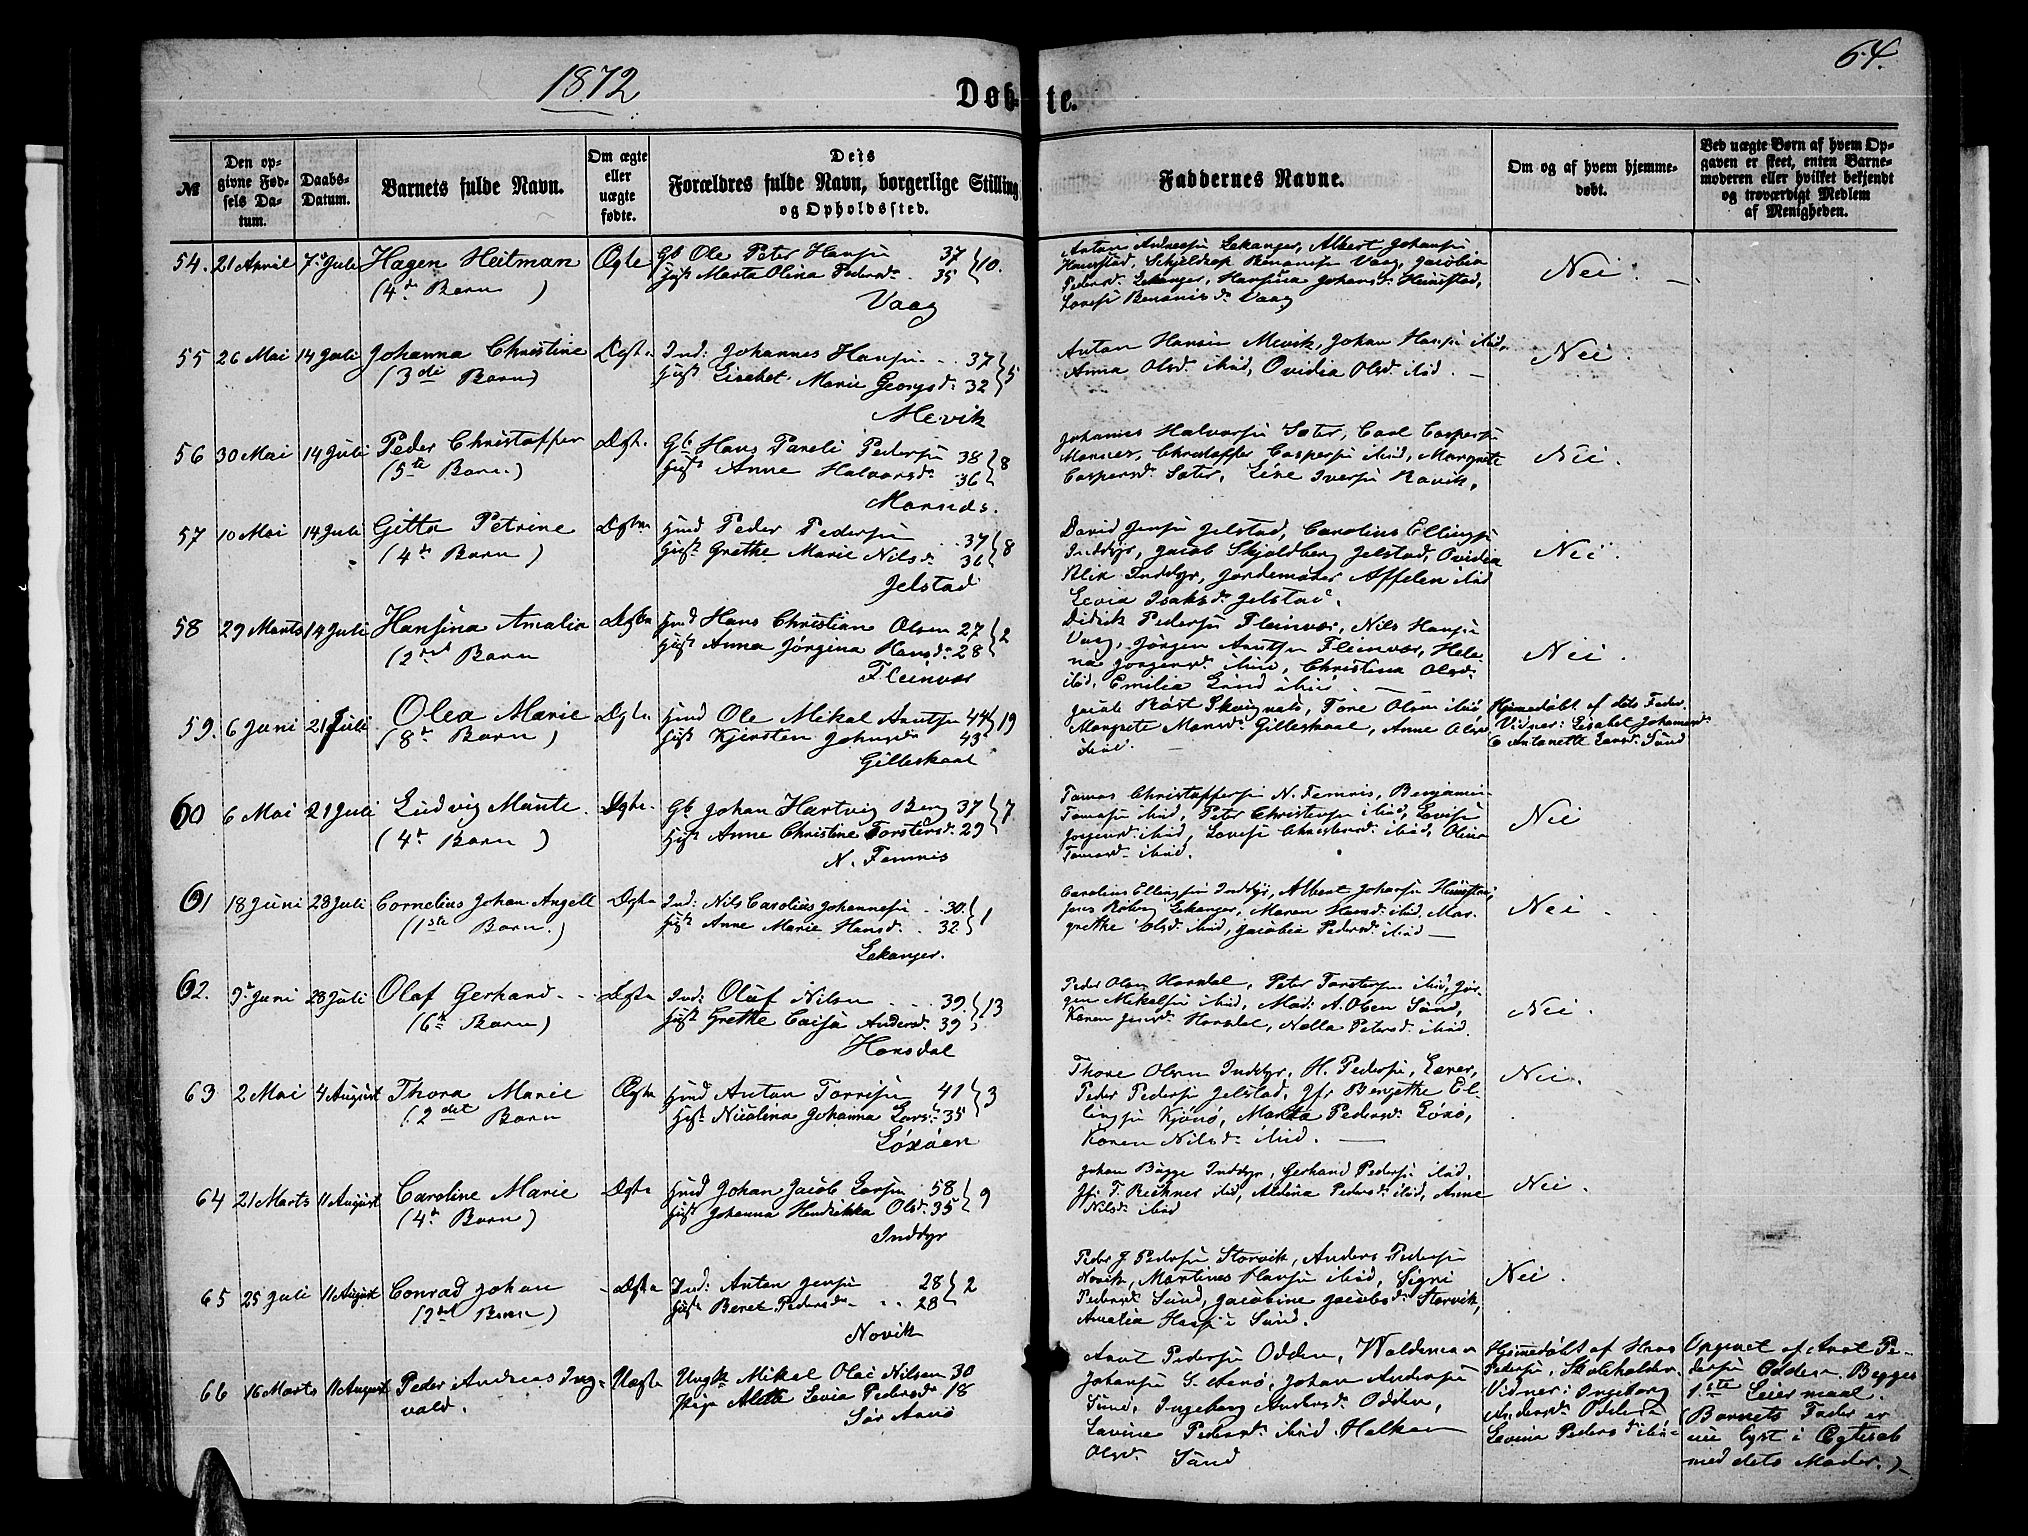 1872
64.
Døbte.
№
Den opgivne Fødsels Datum.
Daabs-Datum.
Barnets fulde Navn.
Om ægte eller uægte fødte.
Dets Forældres fulde Navn, borgerlige Stilling og Opholdssted.
Faddernes Navne.
Om og af hvem hjemmedøbt.
Ved uægte Børn af hvem Opgaven er skeet, enten Barnemoderen eller hvilket bekjendt og troværdigt Medlem af Menigheden.
54. 21 April 7de Juli Hagen Heitman Ægte Gb Ole Peter Hansen 37 } 10.
(4de Barn) Hust Marta Olina Pedersd. 35
Vaag
Anton Andreesen Lekanger, Albert Johansen
Hennstad, Schjeldrop Benonisen Vaag, Jacobia
Pedersd. Lekanger, Hansina Johansd. Hennstad,
Lovise Benonisd. Vaag
Nei
55 26 Mai 14 Juli Johanna Christine Ægte Ind: Johannes Hansen 37 } 5
(3die Barn) Hust Lisebet Marie Georgsd. 32
Mevik
Anton Hansen Mevik, Johan Hansen ibid,
Anna Olsd. ibid, Ovidia Olsd. ibid.
Nei.
56 30 Mai 14 Juli Peder Christoffer Ægte Gb Hans Pareli Pedersen 38 } 8
(5te Barn.) Hust Anne Halvorsd. 36
Marnæs.
Johannes Halvorsen Sæter, Carl Caspersen
Marnæs, Christoffer Caspersen ibid, Margrete
Caspersd. Sæter, Lise Iversen Ravik.
Nei.
57 10 Mai 14 Juli Gitta Petrine Ægte Hmd Peder Pedersen 37 } 8
(4de Barn) Hust Grethe Marie Nilsd. 36
Jelstad
David Jensen Jelstad, Carolius Ellingsen
Inddyr, Jacob Skjoldberg Jelstad, Ovidia
Blix Inddyr, Jordemoder Affelen ibid
Levia Isaksd. Jelstad.
Nei.
58 29 Marts 14 Juli Hansina Amalia Ægte Hmd Hans Christian Olsen 27 } 2
(2det Barn Hust Anna Jørgina Hansd. 28
Fleinvær
Didrik Pedersen Fleinvær, Nils Hansen
Vaag, Jørgen Arntsen Fleinvær, Helena
Jørgensd. ibid, Christina Olsd.
ibid, Emilia Lund ibid.
Nei.
59. 6 Juni 21 Juli Olea Marie Ægte Hmd Ole Mikal Arntsen 44 } 19
(8de Barn) Hust Kjersten Johnsd. 43
Gilleskaal
Jacob Røst Skvignæs, Tore Olsen ibid
Margrete Monsd. Gilleskaal, Anne Olsd.
ibid.
Hjemmedøbt af dets Fader.
Vidner: Lisabet Johannesd.
& Antonette Larsd. Sund
60 6 Mai 21 Juli Ludvig Mante Ægte Gb Johan Hartvig Berg 37 } 7
(4de Barn) Hust Anne Christine Torstensd. 29
N. Femris
Tomas Christoffersen N. Femris, Benjamin
Tomasen ibid, Peter Christensen ibid, Lovise
Jørgensd. ibid, Lovise Christensd. ibid, Olina
Tomasd. ibid.
Nei
61 18 Juni 28 Juli Cornelius Johan Angell Ægte Ind: Nils Carolius Johannesen 30. } 1
(1ste Barn.) Hust Anne Marie Hansd. 32
Lekanger.
Carolius Ellingsen Inddyr, Albert Johansen Hennstad,
Jens Røberg Lekanger, Maren Hansd. ibid, Margrethe
Olsd. ibid, Jacobia Pedersd. ibid
Nei
62. 9de Juni 28 Juli Olaf Gerhard Ægte Ind: Oluf Nilsen 39. } 13
(6te Barn) Hust Grethe Caisa Andersd. 39
Horsdal
Peder Olsen Horsdal, Peter Torstensen ibid, Jørgen
Mikalsen ibid, Mad: A. Olsen Sund,
Karen Jensd. Horsdal, Nella Petersd. ibid.
Nei
63 2 Mai 4 August Thora Marie Ægte Hmd Anton Torrisen 41 } 3
(2det Barn Hust Nicoline Johanna Larsd. 35
Loxøen
Thore Olsen Inddyr, H. Pedersen,
Peder Pedersen Jelstad, Jfr Bergithe Ellingsen
Kjønø, Marta Pedersd. Loxø,
Karen Nilsd. ibid.
Nei.
64 21 Marts 11 August Caroline Marie Ægte Hmd Johan Jacob Larsen 58 } 9
(4de Barn) Hust Johanna Hendrikka Olsd. 35
Inddyr
Johan Bugge Inddyr, Gerhard Pedersen ibid,
Jfr. T. Bechner ibid, Aldina Pedersd. ibid, Anne
Nilsd. ibid
Nei.
65 25 Juli 11 August Conrad Johan Ægte Ind: Anton Jensen 28 } 2
(2det Barn) Hust Beret Pedersd. 28
Novik
Peder J. Pedersen Storvik, Anders Pedersen
Novik, Martines Hansen ibid, Signi
Pedersd. Sund, Jacobine Jacobsd. Storvik,
Amalia Hansen Sund.
Nei.
66 16 Marts 11 August Peder Andreas Ingvald. Uægte Ungk Mikal Olai Nilsen 30
Pige Aleth Levia Pedersd. 18
Sør Arnø
Arnt Pedersen Odden, Waldemar
Johansen S. Arnø, Johan Andersen
Sund, Ingeborg Andersd. Odden,
Lavina Pedersd. ibid
Olsd. Sund
Hjemmedøbt af Hans
Pedersen, Skoleholder.
Vidner: Ingeborg
Andersd. Odden
Lavina Pedersd ibid
Opgivet af Arnt Pedersen
Odden. Begges
1ste Leiermaal.
(Barnets Fader er
nu lyst i Ægteskab
med dets Moder.)